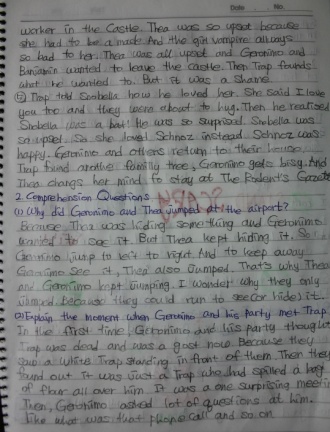 Date . . No.
worker in the Castle. Thea was so upset because
she had to be a maid. And the girl vampire always
so bad to her. Then was all upset and Geronimo and
Benjamin wanted to leave the castle. Then Trap founds
what he wanted to. But it was a shame
Trap told Snobella how he loved her. She said I love
you too and they were about to hug. Then he realized
Snobella was a bat. He was so surprised. Snobella was
so upset. So she loved Schnoz instead. Schnoz was
happy. Geronimo and others return to their house.
Trap found anothe familly tree, Geronimo gets bissy. And
Thea changs her mind to stay at The Rodent's Gazette
2. Comprehension Questions
(1) Why did Geronimo and Thea jumped at the airport?
Because Thea was hiding something and Geronimo
wanted to see it. But Thea kept hiding it. So
Geronimo jump to left to right. And to keep away
Geronimo see it, Thea also jumped. That's why Thea
and Geronimo kept jumping. I wonder why they only
jumped because they could run to see(or hide) it.
(2) Explain the moment when Geronimo and his party met Trap
In the first time, Geronimo and his party thought
Trap was dead and was a gost now. Because they
saw a white Trap standing in front of them. Then they
found out it was just a Trap who had spilled a bag
of flour all over him. It was a one surprising meetin
Then, Geronimo asked lot of questions at him.
Like what was that phone call and so on.